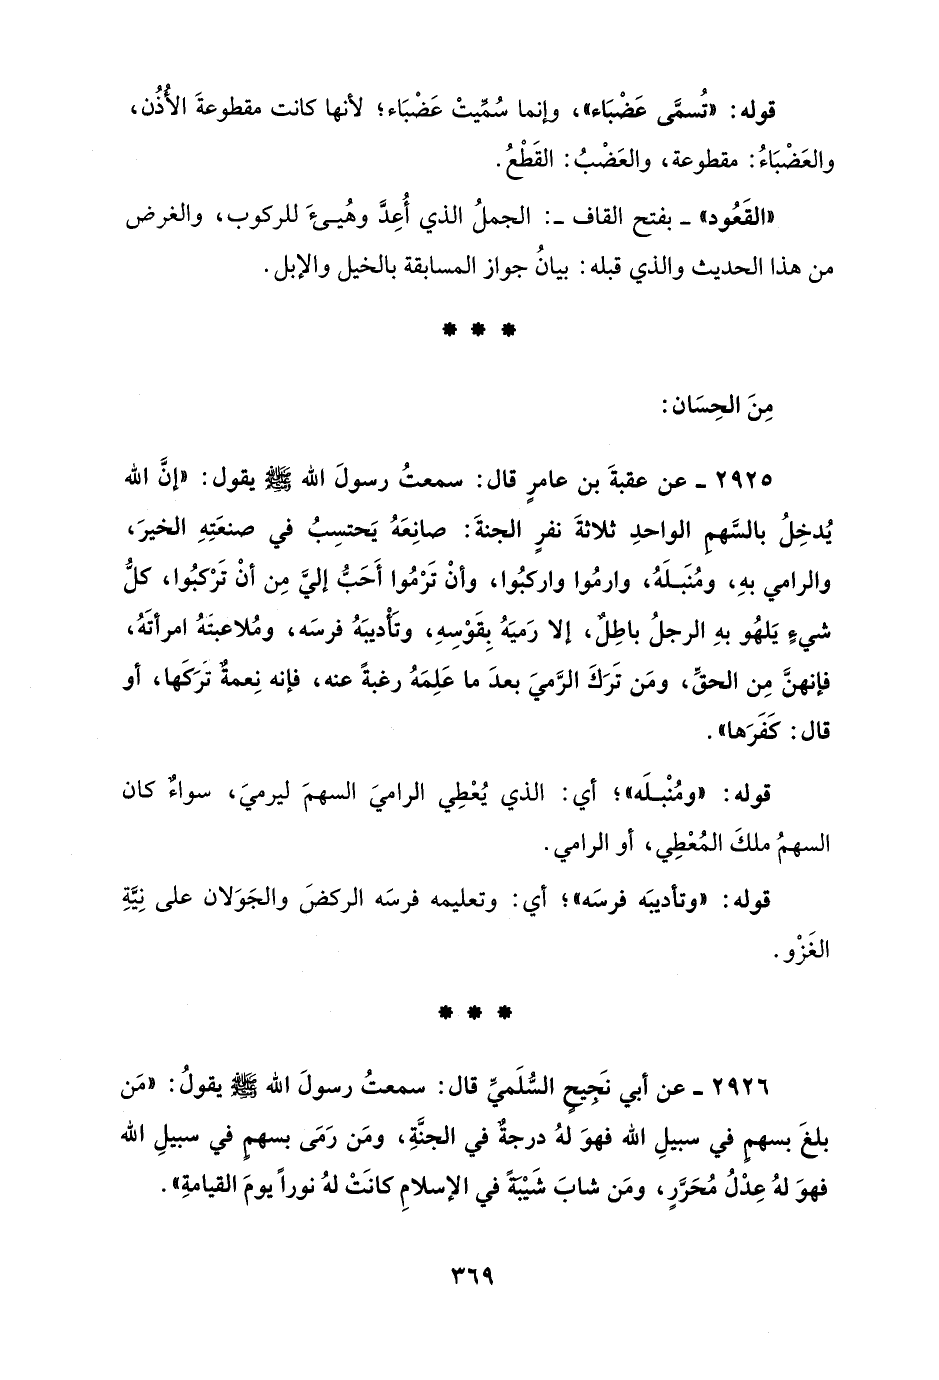 قوله: «تُسمَّى عَضْبَاء»، وإنما سُمِّيتْ عَضْبَاء؛ لأنها كانت مقطوعةَ الأُذُن،
والعَضْبَاءُ: مقطوعة، والعَضْبُ: القَطْعُ.
«القَعُود» ـ بفتح القاف ـ: الجملُ الذي أُعِدَّ وهُيـئَ للركوب، والغرض
من هذا الحديث والذي قبله: بيانُ جواز المسابقة بالخيل والإبل.
* * *
مِنَ الحِسَان:
٢٩٢٥ ـ عن عقبةَ بن عامرٍ قال: سمعتُ رسولَ الله ﷺ يقول: «إنَّ الله
يُدخِلُ بالسَّهمِ الواحدِ ثلاثةَ نفرٍ الجنةَ: صانِعَهُ يَحتسِبُ في صنعَتِهِ الخيرَ،
والرامي بهِ، ومُنَبـلَهُ، وارمُوا واركبُوا، وأنْ تَرْمُوا أحَبُّ إليَّ مِن أنْ تَرْكبُوا، كلُّ
شيءٍ يَلهُو بهِ الرجلُ باطِلٌ، إلا رَميَهُ بِقَوْسِهِ، وتَأْديبَهُ فرسَه، ومُلاعبتَهُ امرأتَهُ،
فإنهنَّ مِن الحقِّ، ومَن تَركَ الرَّميَ بعدَ ما عَلِمَهُ رغبةً عنه، فإنه نِعمةٌ تَرَكَها، أو
قال: كَفَرَها».
قوله: «ومُنْبـلَه»؛ أي: الذي يُعْطِي الراميَ السهمَ ليرميَ، سواءٌ كان
السهمُ ملكَ المُعْطِي، أو الرامي.
قوله: «وتأديبَه فرسَه»؛ أي: وتعليمه فرسَه الركضَ والجَوَلان على نِيَّةِ
الغَزْو.
* * *
٢٩٢٦ ـ عن أبي نَجِيحٍ السُّلَميِّ قال: سمعتُ رسولَ الله ﷺ يقولُ: «مَن
بلغَ بسهمٍ في سبيلِ الله فهوَ لهُ درجةٌ في الجنَّةِ، ومَن رَمَى بسهمٍ في سبيلِ الله
فهوَ لهُ عِدْلُ مُحَرَّرٍ، ومَن شابَ شَيْبَةً في الإسلامِ كانَتْ لهُ نوراً يومَ القيامةِ».
٣٦٩